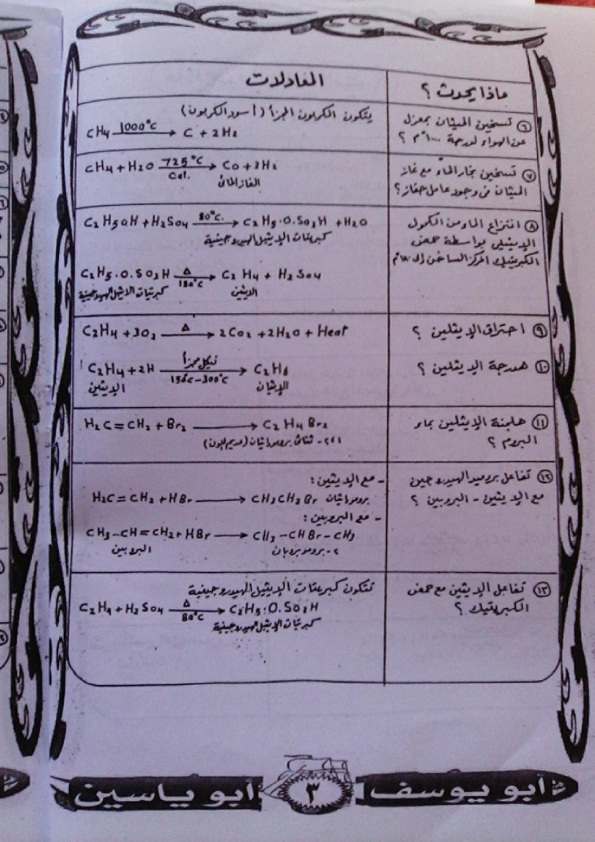 ماذا يحدث ؟
المعادلات
٦ تسخين الميثان بمعزل
عن الهواء لدرجة ١٠٠٠°م ؟
يتكون الكربون المجزأ (أسود الكربون)
CH4 —1000°c→ C + 2H2
٧ تسخين بخار الماء مع غاز
الميثان فى وجود عامل حفاز ؟
CH4 + H2O —725°c Cat.→ CO + 3H2
الغاز المائى
٨ انتزاع الماء من الكحول
الإيثيلى بواسطة حمض
الكبريتيك المركز الساخن إلى
C2H5OH + H2SO4 —80°c→ C2H5.O.SO3H + H2O
كبريتات الإيثيل الهيدروجينية
C2H5.O.SO3H —Δ 180°c→ C2H4 + H2SO4
كبريتات الإيثيل الهيدروجينية الإيثين
٩ احتراق الإيثلين ؟
C2H4 + 3O2 —Δ→ 2CO2 + 2H2O + Heat
١٠ هدرجة الإيثلين ؟
C2H4 + 2H —نيكل مجزأ 150c-300°c→ C2H6
الإيثين الإيثان
١١ هلجنة الإيثلين بماء
البروم ؟
H2C=CH2 + Br2 → C2H4Br2
١،٢- ثنائى بروموإيثان (عديم اللون)
١٢ تفاعل بروميد الهيدروجين
مع الإيثين - البروبين ؟
- مع الإيثين :
H2C=CH2 + HBr → CH3CH2Br بروموإيثان
- مع البروبين :
CH3-CH=CH2 + HBr → CH3-CHBr-CH3
البروبين ٢- بروموبروبان
١٣ تفاعل الإيثين مع حمض
الكبريتيك ؟
تتكون كبريتات الإيثيل الهيدروجينية
C2H4 + H2SO4 —Δ 80°c→ C2H5.O.SO3H
كبريتات الإيثيل الهيدروجينية
أبو يوسف ٣ أبو ياسين